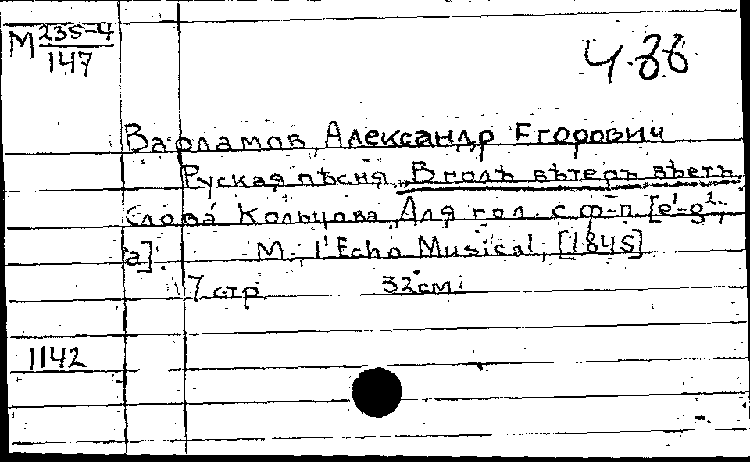 М 235-4
147
4.88
Варламов, Александр Егорович
Руская пѣсня „Вполѣ вѣтеръ вѣетъ
Слова Кольцова Для гол. с ф-п. [e¹-g²,
a].
М., l'Echo Musical, [1845]
7 стр 32см.
1142